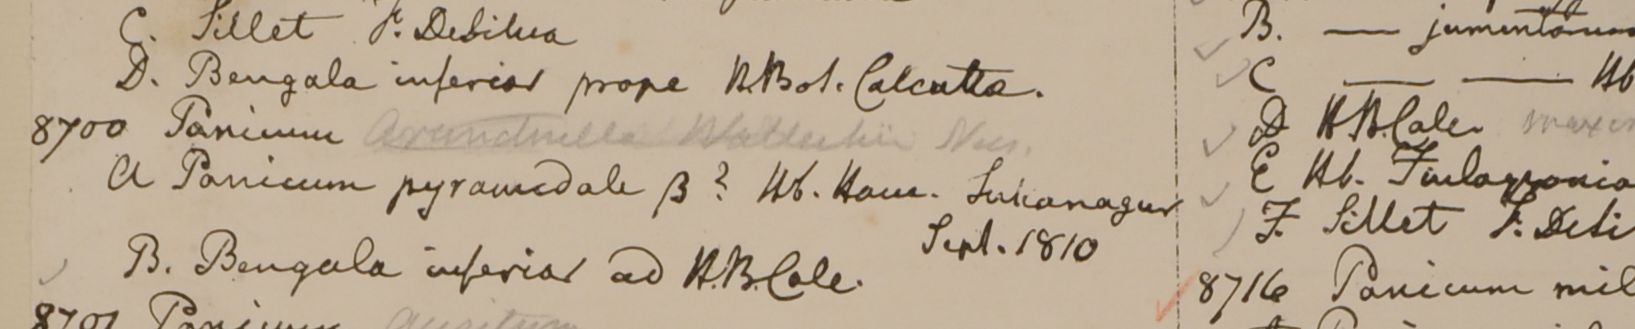 C. Sillet F. DeSilva
D. Bengala inferior prope H.Bot. Calcutta.
8700 Panicum Arundinella Wallichii Nees.
A Panicum pyramidale β? Hb. Ham. Sukanagur
Sept. 1810
B. Bengala inferior ad H.B.Calc.
8701 Panicum
B. — jumentorum
C — — Hb
D H.B.Calc.
E Hb. Finlaysonia
F. Sillet F. DeSi
8716 Panicum mil